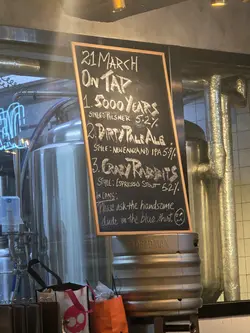 21 MARCH
ON TAP
1. 5000 YEARS
STYLE: PILSNER 5.2%
2. DIRTY PALE ALE
STYLE: NEW ENGLAND IPA 5.9%
3. CRAZY RABBITS
STYLE: ESPRESSO STOUT 5.2%
IN CANS:
Please ask the handsome
dude in the blue shirt